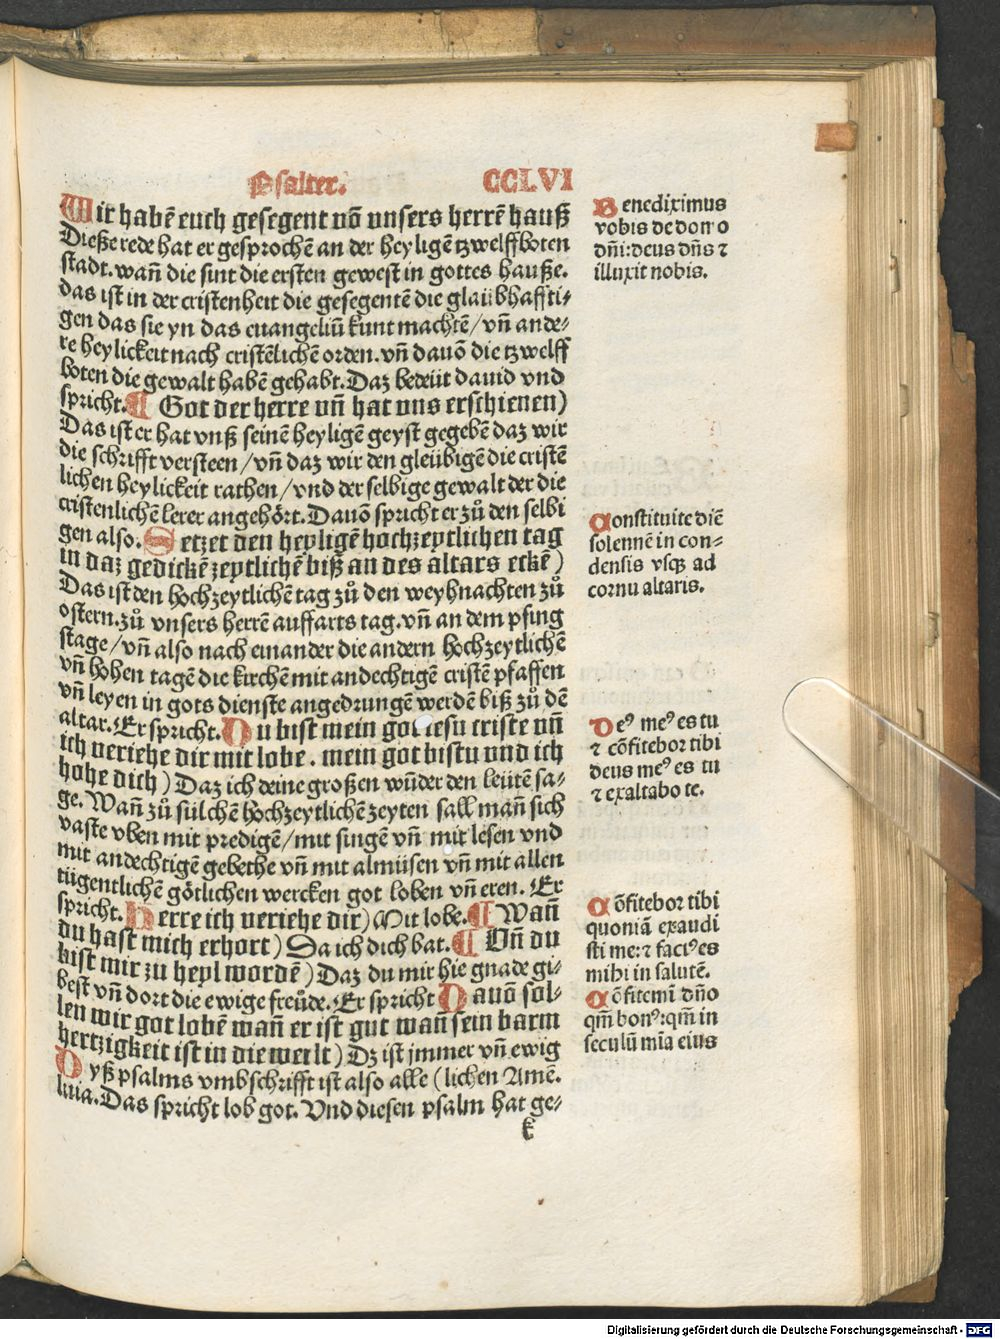 Psalter. CCLVI
Wir habẽ euch gesegent võ unsers herrẽ hauß
Dieße rede hat er gesprochẽ an der heyligẽ tzwelffboten
stadt. wañ die sint die ersten gewest in gottes hauße.
das ist in der cristenheit die gesegentẽ die glaübhaffti-
gen das sie yn das euangeliũ kunt machtẽ/vñ ande-
re heylickeit nach cristẽlichẽ orden. vñ dauõ die tzwelff
boten die gewalt habẽ gehabt. Daz bedeüt dauid vnd
spricht. ¶ Got der herre uñ hat uns erschienen)
Das ist er hat vnß seinẽ heyligẽ geyst gegebẽ daz wir
die schrifft versteen/vñ daz wir den gleübigẽ die cristẽ
lichen heylickeit rathen/vnd der selbige gewalt der die
cristenlichẽ lerer angehört. Dauõ spricht er zů den selbi
gen also. Setzet den heyligẽ hochzeytlichen tag
in daz gedickẽ zeytlichẽ biß an des altars eckẽ)
Das ist den hochzeytlichẽ tag zů den weyhnachten zů
ostern. zů vnsers herrẽ auffarts tag. vñ an dem pfing
stage/vñ also nach einander die andern hochzeytlichẽ
vñ hohen tagẽ die kirchẽ mit andechtigẽ cristẽ pfaffen
vñ leyen in gots dienste angedrungẽ werdẽ biß zů dẽ
altar. Er spricht. Du bist mein got iesu criste uñ
ich veriehe dir mit lobe. mein got bistu und ich
hohe dich) Daz ich deine großen wũder den leütẽ sa-
ge. Wañ zů sülchẽ hochzeytlichẽ zeyten sall mañ sich
vaste vben mit predigẽ/mit singẽ vñ mit lesen vnd
mit andechtigẽ gebethe vñ mit almüsen vñ mit allen
tügentlichẽ götlichen wercken got loben vñ eren. Er
spricht. Herre ich veriehe dir) Mit lobe. ¶ Wañ
du hast mich erhort) Sa ich dich bat. ¶ Uñ du
bist mir zu heyl wordẽ) Daz du mir hie gnade gi-
best vñ dort die ewige freůde. Er spricht Dauõ sol-
len wir got lobẽ wañ er ist gut wañ sein barm
hertzigkeit ist in die werlt) Dz ist jmmer vñ ewig
Dyß psalms vmbschrifft ist also alle (lichen Amẽ.
luia. Das spricht lob got. Vnd diesen psalm hat ge-
k
Benediximus
vobis de domo
dñi: deus dñs ⁊
illuxit nobis.
Constituite diẽ
solennẽ in con-
densis vsqꝫ ad
cornu altaris.
Deꝰ meꝰ es tu
⁊ cõfitebor tibi
deus meꝰ es tu
⁊ exaltabo te.
Cõfitebor tibi
quoniã exaudi
sti me: ⁊ factꝰ es
mihi in salutẽ.
Cõfitemĩ dño
qm̃ bonꝰ: qm̃ in
seculũ mĩa eius
Digitalisierung gefördert durch die Deutsche Forschungsgemeinschaft - DFG